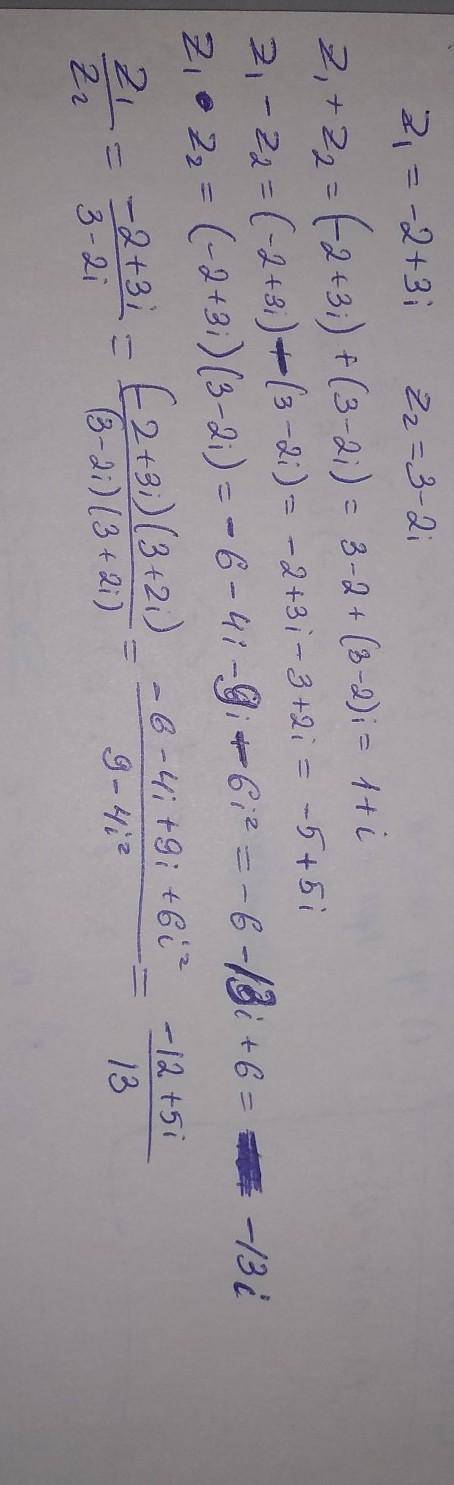 z₁ = -2+3i   z₂ = 3-2i
z₁ + z₂ = (-2+3i) + (3-2i) = 3-2 + (3-2)i = 1+i
z₁ - z₂ = (-2+3i) - (3-2i) = -2+3i-3+2i = -5+5i
z₁ • z₂ = (-2+3i)(3-2i) = -6-4i-9i+6i² = -6-13i+6 = -13i
z₁/z₂ = (-2+3i)/(3-2i) = ((-2+3i)(3+2i))/((3-2i)(3+2i)) = (-6-4i+9i+6i²)/(9-4i²) = (-12+5i)/13